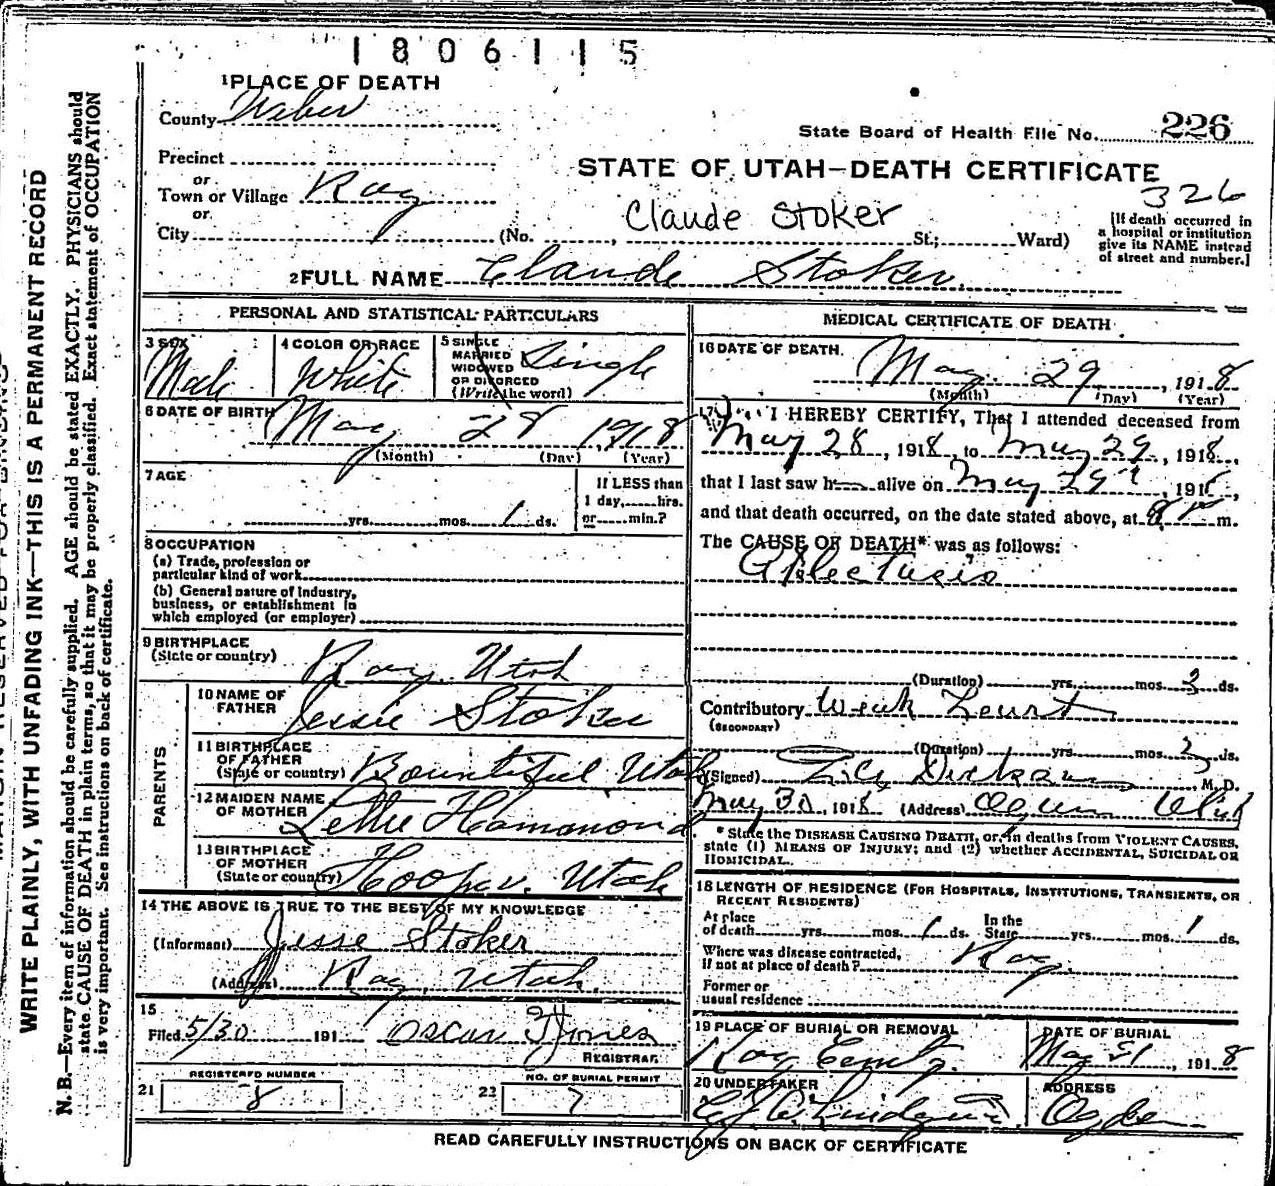 1806115
1 PLACE OF DEATH
County Weber
State Board of Health File No. 226
Precinct
or
STATE OF UTAH—DEATH CERTIFICATE
326
Town or Village Roy
or
Claude Stoker
City (No. , St.; Ward)
[If death occurred in
a hospital or institution
give its NAME instead
of street and number.]
2 FULL NAME Claude Stoker.
WRITE PLAINLY, WITH UNFADING INK—THIS IS A PERMANENT RECORD
N. B.—Every item of information should be carefully supplied. AGE should be stated EXACTLY. PHYSICIANS should
state CAUSE OF DEATH in plain terms, so that it may be properly classified. Exact statement of OCCUPATION
is very important. See instructions on back of certificate.
PERSONAL AND STATISTICAL PARTICULARS
3 SEX
Male
4 COLOR OR RACE
White
5 SINGLE
MARRIED
WIDOWED
OR DIVORCED
(Write the word)
Single
6 DATE OF BIRTH
May 28 1918
(Month) (Day) (Year)
7 AGE
yrs. mos. 1 ds.
If LESS than
1 day, hrs.
or min.?
8 OCCUPATION
(a) Trade, profession or
particular kind of work
(b) General nature of Industry,
business, or establishment in
which employed (or employer)
9 BIRTHPLACE
(State or country)
Roy Utah
PARENTS
10 NAME OF
FATHER
Jessie Stoker
11 BIRTHPLACE
OF FATHER
(State or country) Bountiful Utah
12 MAIDEN NAME
OF MOTHER
Lettie Hammond
13 BIRTHPLACE
OF MOTHER
(State or country) Hooper, Utah
14 THE ABOVE IS TRUE TO THE BEST OF MY KNOWLEDGE
(Informant) Jesse Stoker
(Address) Roy, Utah.
15
Filed 5/30 191 Oscar Jones
REGISTRAR
REGISTERED NUMBER
21 8
NO. OF BURIAL PERMIT
22 7
MEDICAL CERTIFICATE OF DEATH
16 DATE OF DEATH.
May 29, 1918
(Month) (Day) (Year)
17 I HEREBY CERTIFY, That I attended deceased from
May 28, 1918, to May 29, 1918,
that I last saw h alive on May 29, 1918,
and that death occurred, on the date stated above, at 8 P m.
The CAUSE OF DEATH* was as follows:
Atilectasis
(Duration) yrs. mos. 2 ds.
Contributory Weak Heart
(SECONDARY)
(Duration) yrs. mos. 2 ds.
(Signed) M. D.
May 30 1918 (Address) Ogden Utah
* State the DISEASE CAUSING DEATH, or, in deaths from VIOLENT CAUSES,
state (1) MEANS OF INJURY; and (2) whether ACCIDENTAL, SUICIDAL OR
HOMICIDAL.
18 LENGTH OF RESIDENCE (FOR HOSPITALS, INSTITUTIONS, TRANSIENTS, OR
RECENT RESIDENTS)
At place
of death yrs. mos. 1 ds.
In the
State yrs. mos. 1 ds.
Where was disease contracted,
if not at place of death? Roy.
Former or
usual residence
19 PLACE OF BURIAL OR REMOVAL
Roy Cemty.
DATE OF BURIAL
May 31, 1918
20 UNDERTAKER
ADDRESS
Ogden
READ CAREFULLY INSTRUCTIONS ON BACK OF CERTIFICATE